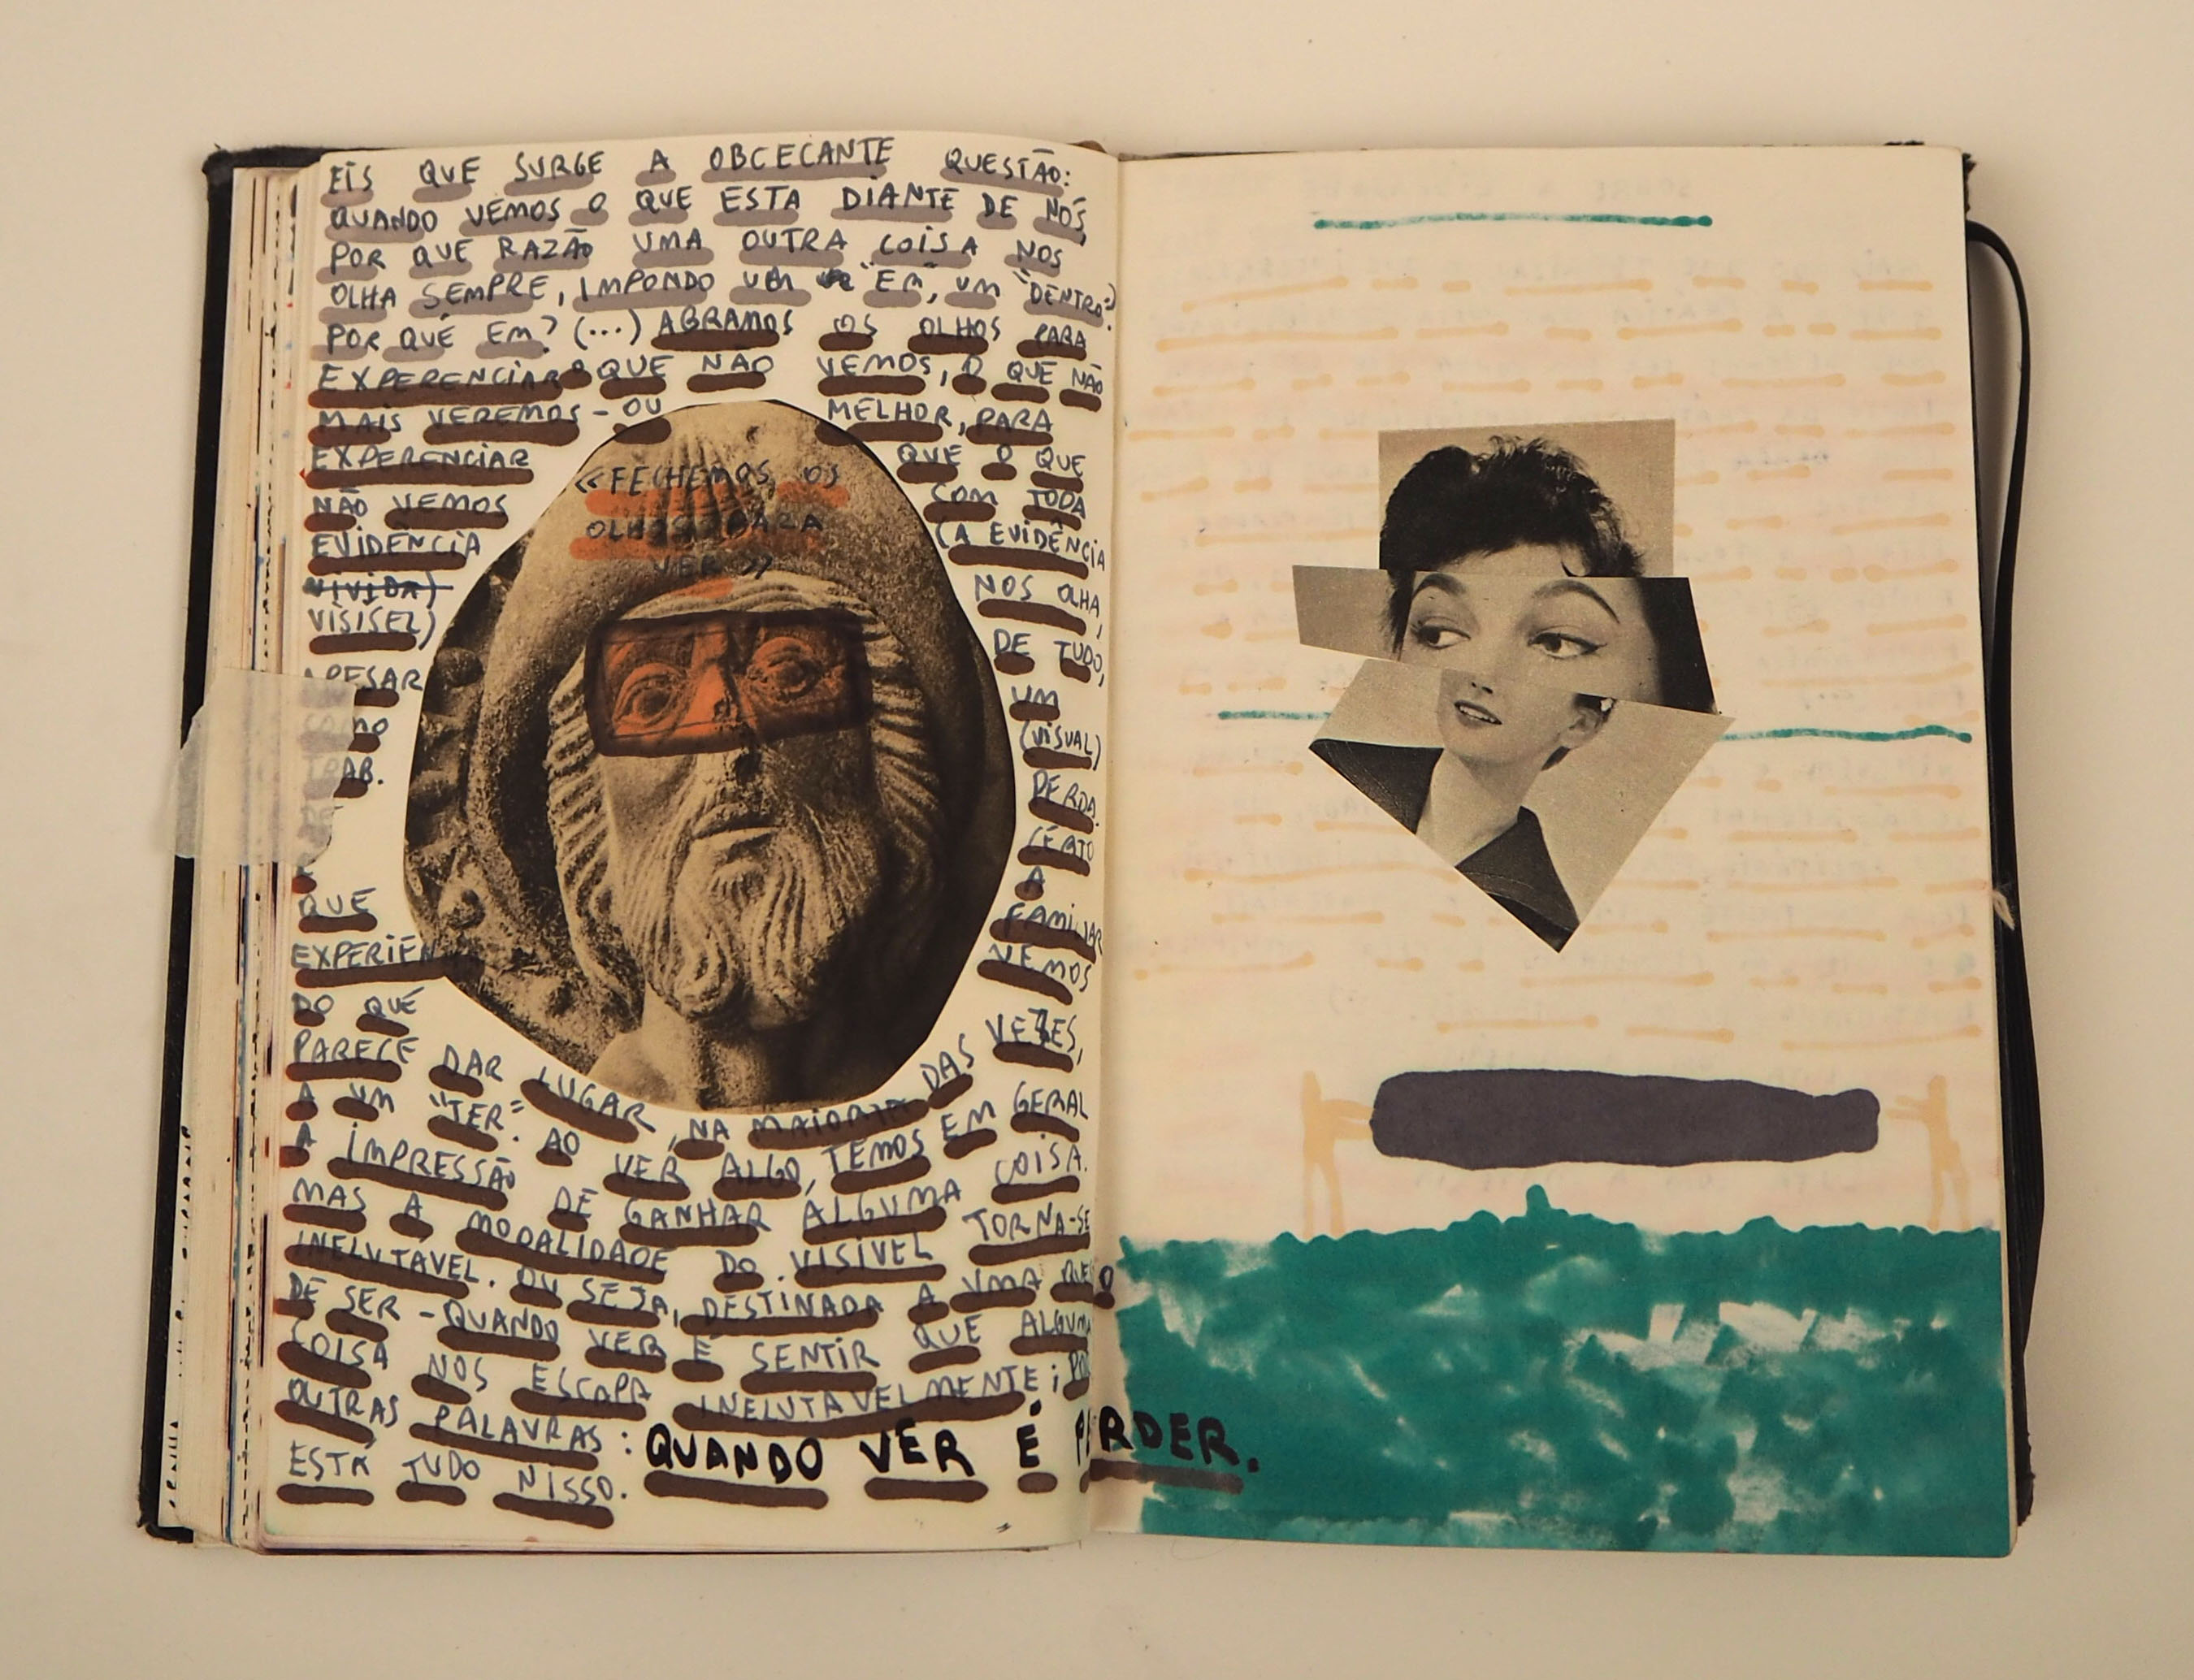 EIS QUE SURGE A OBCECANTE QUESTÃO:
QUANDO VEMOS O QUE ESTA DIANTE DE NÓS,
POR QUE RAZÃO UMA OUTRA COISA NOS
OLHA SEMPRE, IMPONDO UM "EM", UM "DENTRO"?
POR QUÊ EM? (...) ABRAMOS OS OLHOS PARA
EXPERENCIAR O QUE NÃO VEMOS, O QUE NÃO
MAIS VEREMOS - OU MELHOR, PARA
EXPERENCIAR QUE O QUE
NÃO VEMOS COM TODA
EVIDÊNCIA (A EVIDÊNCIA
VIVIDA)
VISISEL) NOS OLHA,
APESAR DE TUDO,
COMO UM
AB. (VISUAL)
PERDA.
CERTO
A
QUE FAMILIAR
EXPERIÊN VEMOS
«FECHEMOS OS
OLHOS PARA
VER»
DO QUE
PARECE DAR LUGAR, NA MAIORIA DAS VEZES,
A UM "TER": AO VER ALGO, TEMOS EM GERAL
A IMPRESSÃO DE GANHAR ALGUMA COISA.
MAS A MODALIDADE DO VISÍVEL TORNA-SE
INELUTAVEL. OU SEJA, DESTINADA A UMA
DE SER - QUANDO VER É SENTIR QUE ALGUMA
COISA NOS ESCAPA INELUTAVELMENTE;
OUTRAS PALAVRAS: QUANDO VER É PERDER.
ESTÁ TUDO NISSO.